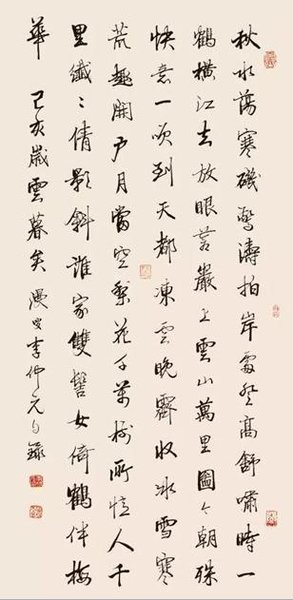 秋水蕩寒磯驚濤拍岸處登高舒嘯時一
鶴橫江去放眼蒼巖上雲山萬里圖今朝殊
快意一吹到天都凍雲晚霽收冰雪寒
荒趣開户月當空梨花千萬樹所憶人千
里纖〻倩影斜誰家雙髻女倚鶴伴梅
華 己亥歲雲暮矣 漫叟李仲元自錄